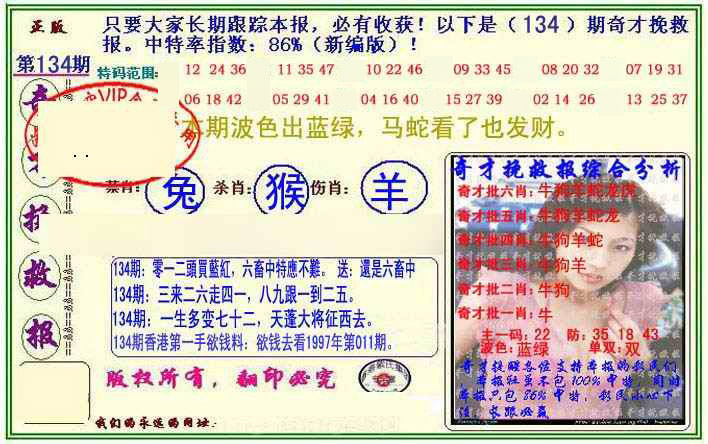 正版
只要大家长期跟踪本报，必有收获！以下是（134）期奇才挽救
报。中特率指数：86%（新编版）！
第134期
特码范围：
12 24 36 11 35 47 10 22 46 09 33 45 08 20 32 07 19 31
06 18 42 05 29 41 04 16 40 15 27 39 02 14 26 13 25 37
VIP会
用
本期波色出蓝绿，马蛇看了也发财。
禁肖：兔 杀肖：猴 伤肖：羊
奇
救
报
134期：零一二頭買藍紅，六畜中特應不難。 送：還是六畜中
134期：三来二六走四一，八九跟一到二五。
134期：一生多变七十二，天蓬大将征西去。
134期香港第一手欲钱料：欲钱去看1997年第011期。
版权所有，翻印必究
我们的永远的网址：
奇才挽救报综合分析
奇才批六肖：牛狗羊蛇龙虎
奇才批五肖：牛狗羊蛇龙
奇才批四肖：牛狗羊蛇
奇才批三肖：牛狗羊
奇才批二肖：牛狗
奇才批一肖：牛
主一码：22 防：35 18 43
波色：蓝绿 单双：双
奇才提醒各位支持本报的彩民们
本报社虽不包100%中特，同时
本报只包86%中特，彩民小心下
注